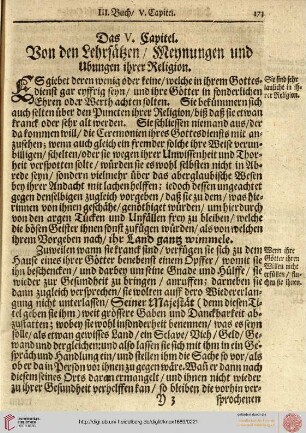 III. Buch/ V. Capitel.
173
Das V. Capitel.
Von den Lehrsätzen/ Meynungen und
Übungen ihrer Religion.
ES giebet deren wenig oder keine/ welche in ihrem Gottes-
dienst gar eyffrig seyn/ und ihre Götter in sonderlichen
Ehren oder Werth achten solten. Sie bekümmern sich
auch selten über den Puncten ihrer Religion/ biß daß sie etwan
kranck oder sehr alt werden. Sie schliessen niemand aus/ der
da kommen will/ die Ceremonien ihres Gottesdiensts mit an-
zusehen; wenn auch gleich ein fremder solche ihre Weise verun-
billigen/ schelten/ oder sie wegen ihrer Unwissenheit und Thor-
heit verspotten solte/ würden sie es wohl selbsten nicht in Ab-
rede seyn/ sondern vielmehr über das aberglaubische Wesen
bey ihrer Andacht mit lachen helffen; jedoch dessen ungeachtet
gegen denselbigen zugleich vorgeben/ daß sie zu dem/ was hie-
rinnen von ihnen geschähe/ genöthiget würden/ um hierdurch
von den argen Tücken und Unfällen frey zu bleiben/ welche
die bösen Geister ihnen sonst zufügen würden/ als von welchen
ihrem Vorgeben nach/ ihr Land gantz wimmele.
Sie sind sehr
in ih-
rer Religion.
Zuweilen wann sie kranck sind/ verfügen sie sich zu dem
Hause eines ihrer Götter benebenst einem Opffer/ womit sie
ihn beschencken/ und darbey um seine Gnade und Hülffe/ sie
wieder zur Gesundheit zu bringen/ anruffen; darneben sie
dann zugleich versprechen/ sie wolten auff dero Wiedererlan-
gung nicht unterlassen/ Seiner Majestät (denn diesen Ti-
tel geben sie ihm) weit grössere Gaben und Danckbarkeit ab-
zustatten; wobey sie wohl insonderheit benennen/ was es seyn
solle/ als etwan gewisses Land/ ein Sclave/ Vieh/ Geld/ Ge-
wand und dergleichen/ und also lassen sie sich mit ihm in ein Ge-
spräch und Handlung ein/ und stellen ihm die Sache so vor/ als
ob er da in Person vor ihnen zugegen wäre. Wañ er dann nach
diesem seines Orts daran ermangelt/ und ihnen nicht wieder
zu ihrer Gesundheit verhelffen kan/ so bleiben die vorhin ver-
Wenn ihre
Götter ihren
Willen nicht
erfüllen/ flu-
chen sie ihnen.
Y 3
sprochenen
http://digi.ub.uni-heidelberg.de/diglit/knox1689/0221